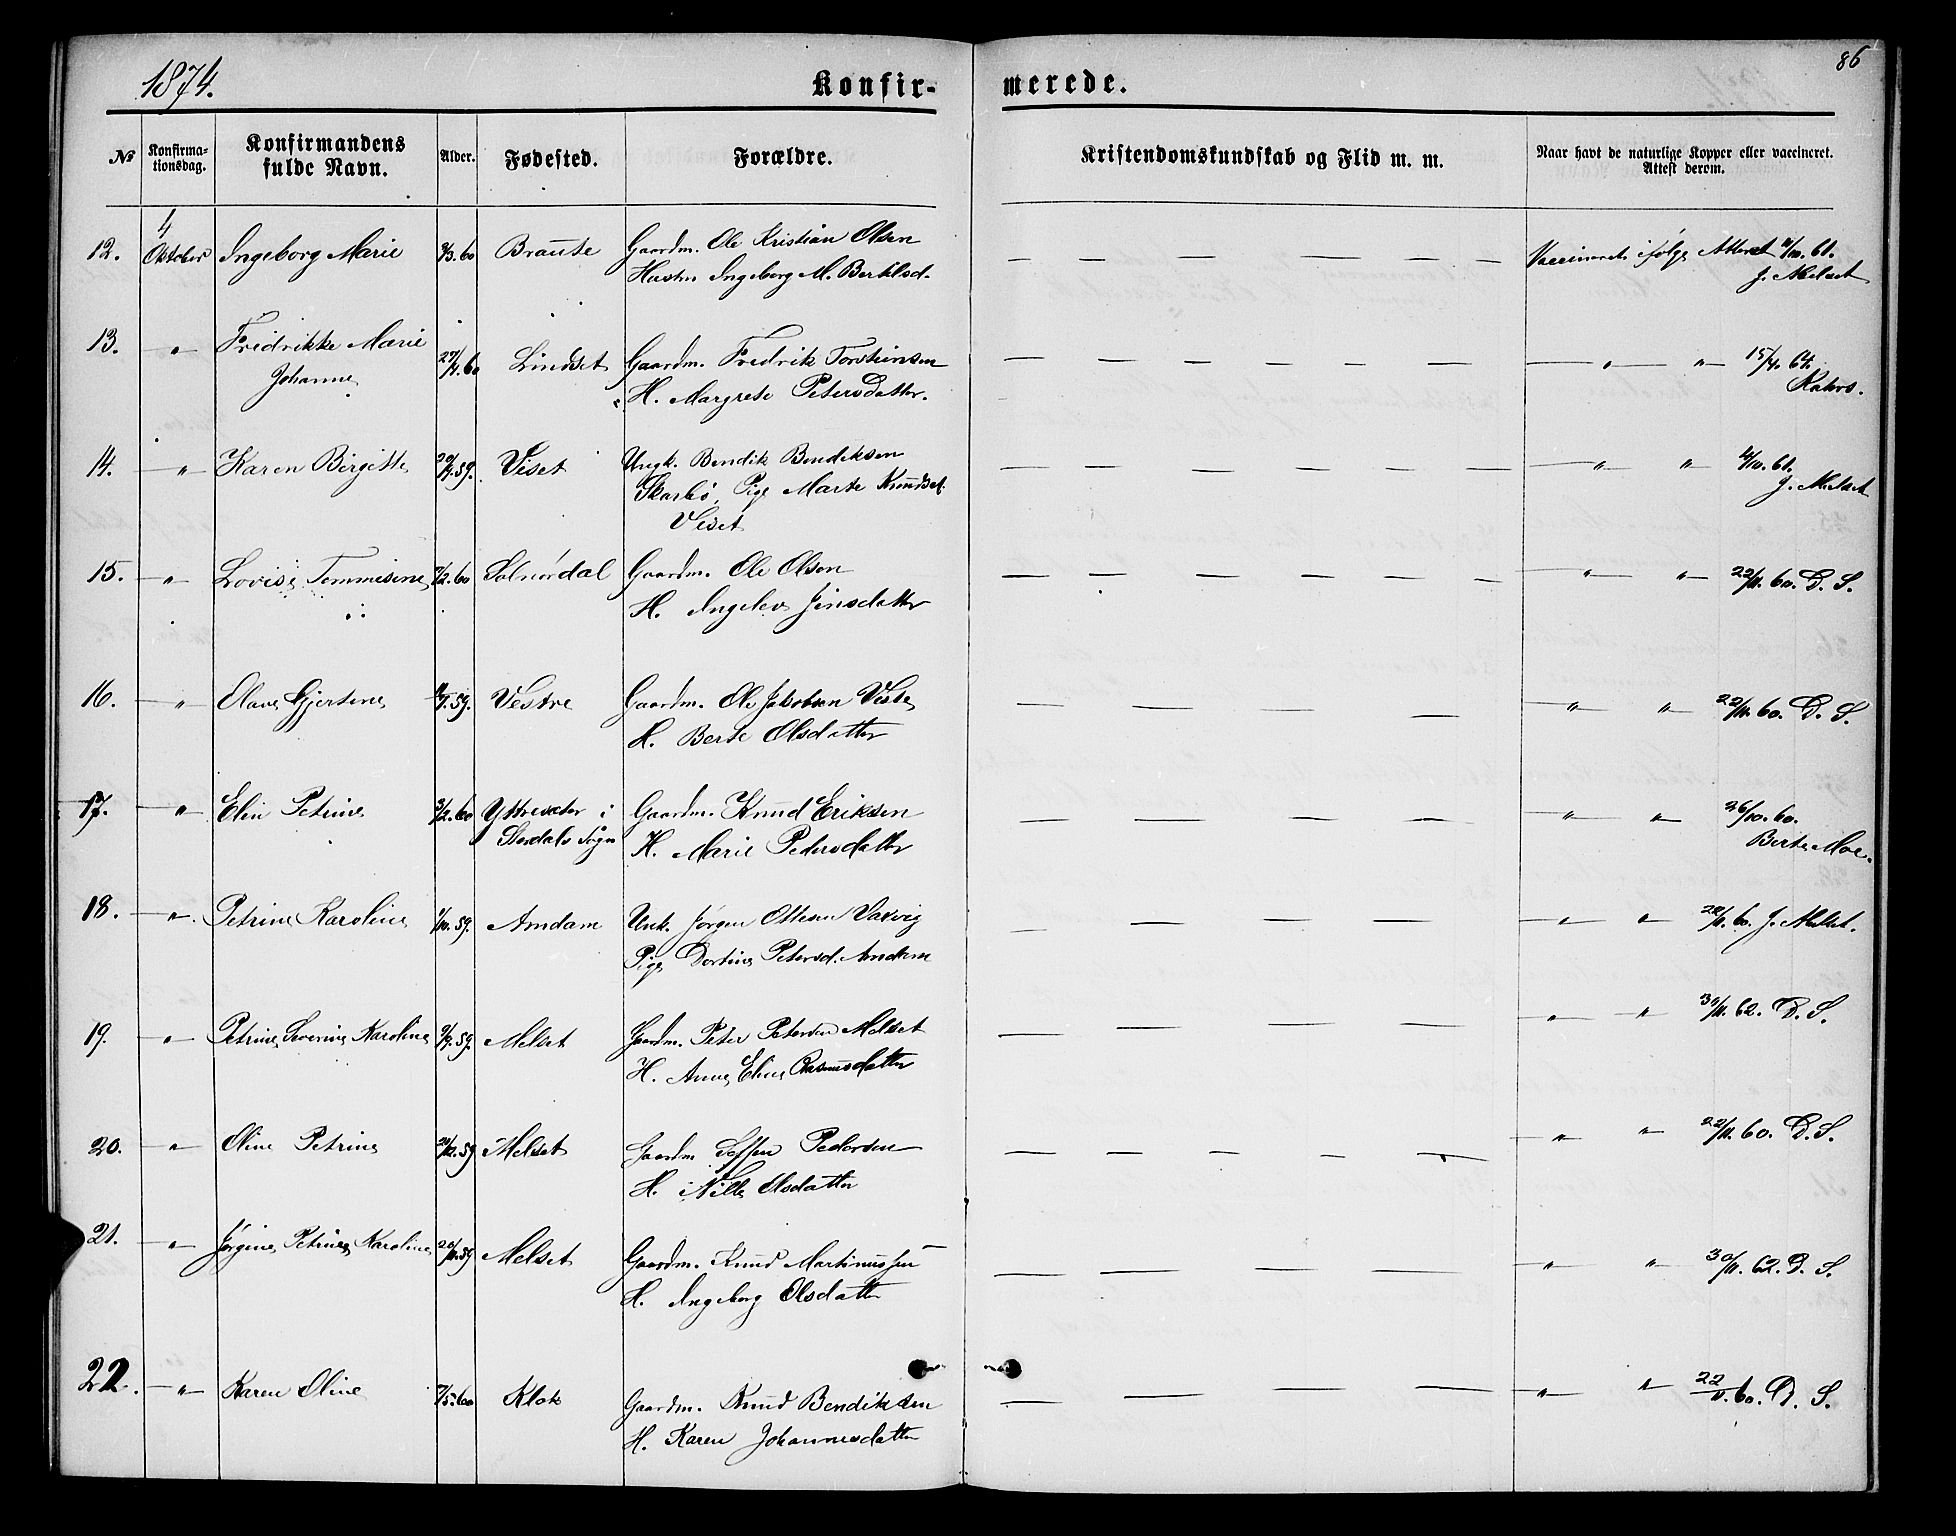 1874.
Konfir-
merede.
86
№
Konfirma-
tionsdag.
Konfirmandens
fulde Navn.
Alder.
Fødested.
Forældre.
Kristendomskundskab og Flid m. m.
Naar havt de naturlige Kopper eller vaccineret.
Attest derom.
12. 4 October Ingeborg Marie 9/3.60 Brauste Gaardm. Ole Kristian Olsen — — — — — — — Vaccineret ifølge Attest 4/10.61.
Hustru Ingeborg M. Bertelsd. J. Melset
13. — " — Fredrikke Marie 27/4.60 Lindset Gaardm. Fredrik Torsteinsen — — — — — — — — " — " — 15/4. 64.
Johanne H. Margrete Petersdatter. Rahrs.
14. — " — Karen Birgitte 20/4.59. Viset Ungk. Bendik Bendiksen — — — — — — — — " " — 4/10.61.
Skarbø, Pige Marte Knudsd. J. Melset
Viset
15. — " — Lovise Tommesine 7/2.60 Solnørdal Gaardm. Ole Olsen — — — — — — — " — " — 22/11.60. D. S.
H. Ingelev Jensdatter
16. — " Olave Gjertine 11/9.59. Vestre Gaardm. Ole Jakobsen Viste — — — — — " — " — 22/11.60. D. S.
H. Berte Olsdatter
17. — " — Elen Petrine 3/2.60 Yttresæter i Gaardm. Knud Eriksen — — — — — " — " — 26/10.60.
Stordals Sogn H. Marie Pedersdatter Berte Moe.
18. — " — Petrine Karoline 1/10.59. Amdam Unk. Jørgen Ottesen Vaxvig — — — — — " — " 22/11.60. J. Melset.
Pige Dortine Petersd. Amdam
19. — " — Petrine Severine Karoline 9/9.59. Melset Gaardm. Peter Petersen Melset — — — — — " — " — 30/11.62. D. S.
H. Anne Eline Rasmusdatter
20. — " — Oline Petrine 21/12.59 Melset Gaardm Steffen Pedersen — — — — — — " — " — 22/11.60. D. S.
H. Nille Olsdatter
21. — " — Jørgine Petrine Karoline 20/11.59 Melset Gaardm. Knud Martinussen — — — — — " — " 30/11.62. D. S.
H. Ingeborg Olsdatter
22. — " — Karen Oline 7/5.60 Klok Gaardm. Knud Bendiksen — — — — — " — " — 22/11.60. D. S.
H. Karen Johannesdatter